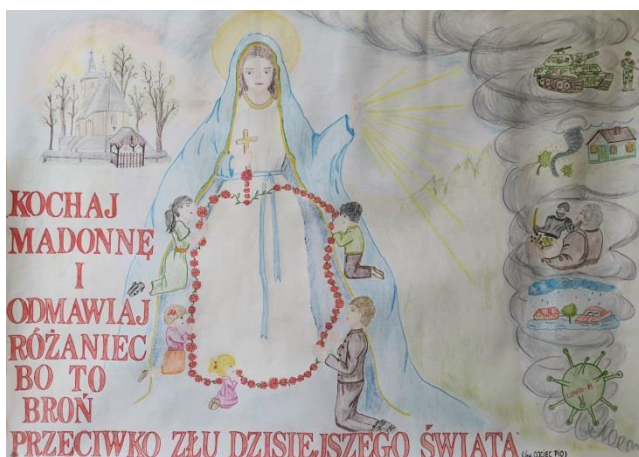 KOCHAJ
MADONNĘ
I
ODMAWIAJ
RÓŻANIEC
BO TO
BROŃ
PRZECIWKO ZŁU DZISIEJSZEGO ŚWIATA (św. OJCIEC PIO)
COVID-19